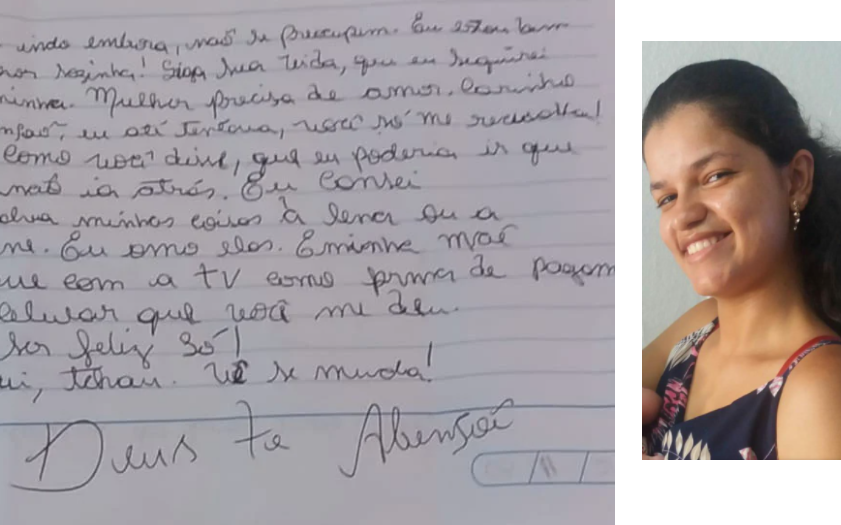 indo embora, não se preocupem. Eu estou bem
sozinha! Siga sua vida, que eu seguirei
minha. Mulher precisa de amor, carinho
eu até tentava, você só me
como você disse, que eu poderia ir que
não ia atrás. Eu cansei
minhas coisas à Lena ou a
Eu amo elas. E minha mãe
com a TV como forma de pagam
celular que você me deu.
ser feliz só!
tchau. Vê se muda!
Deus te Abençoê